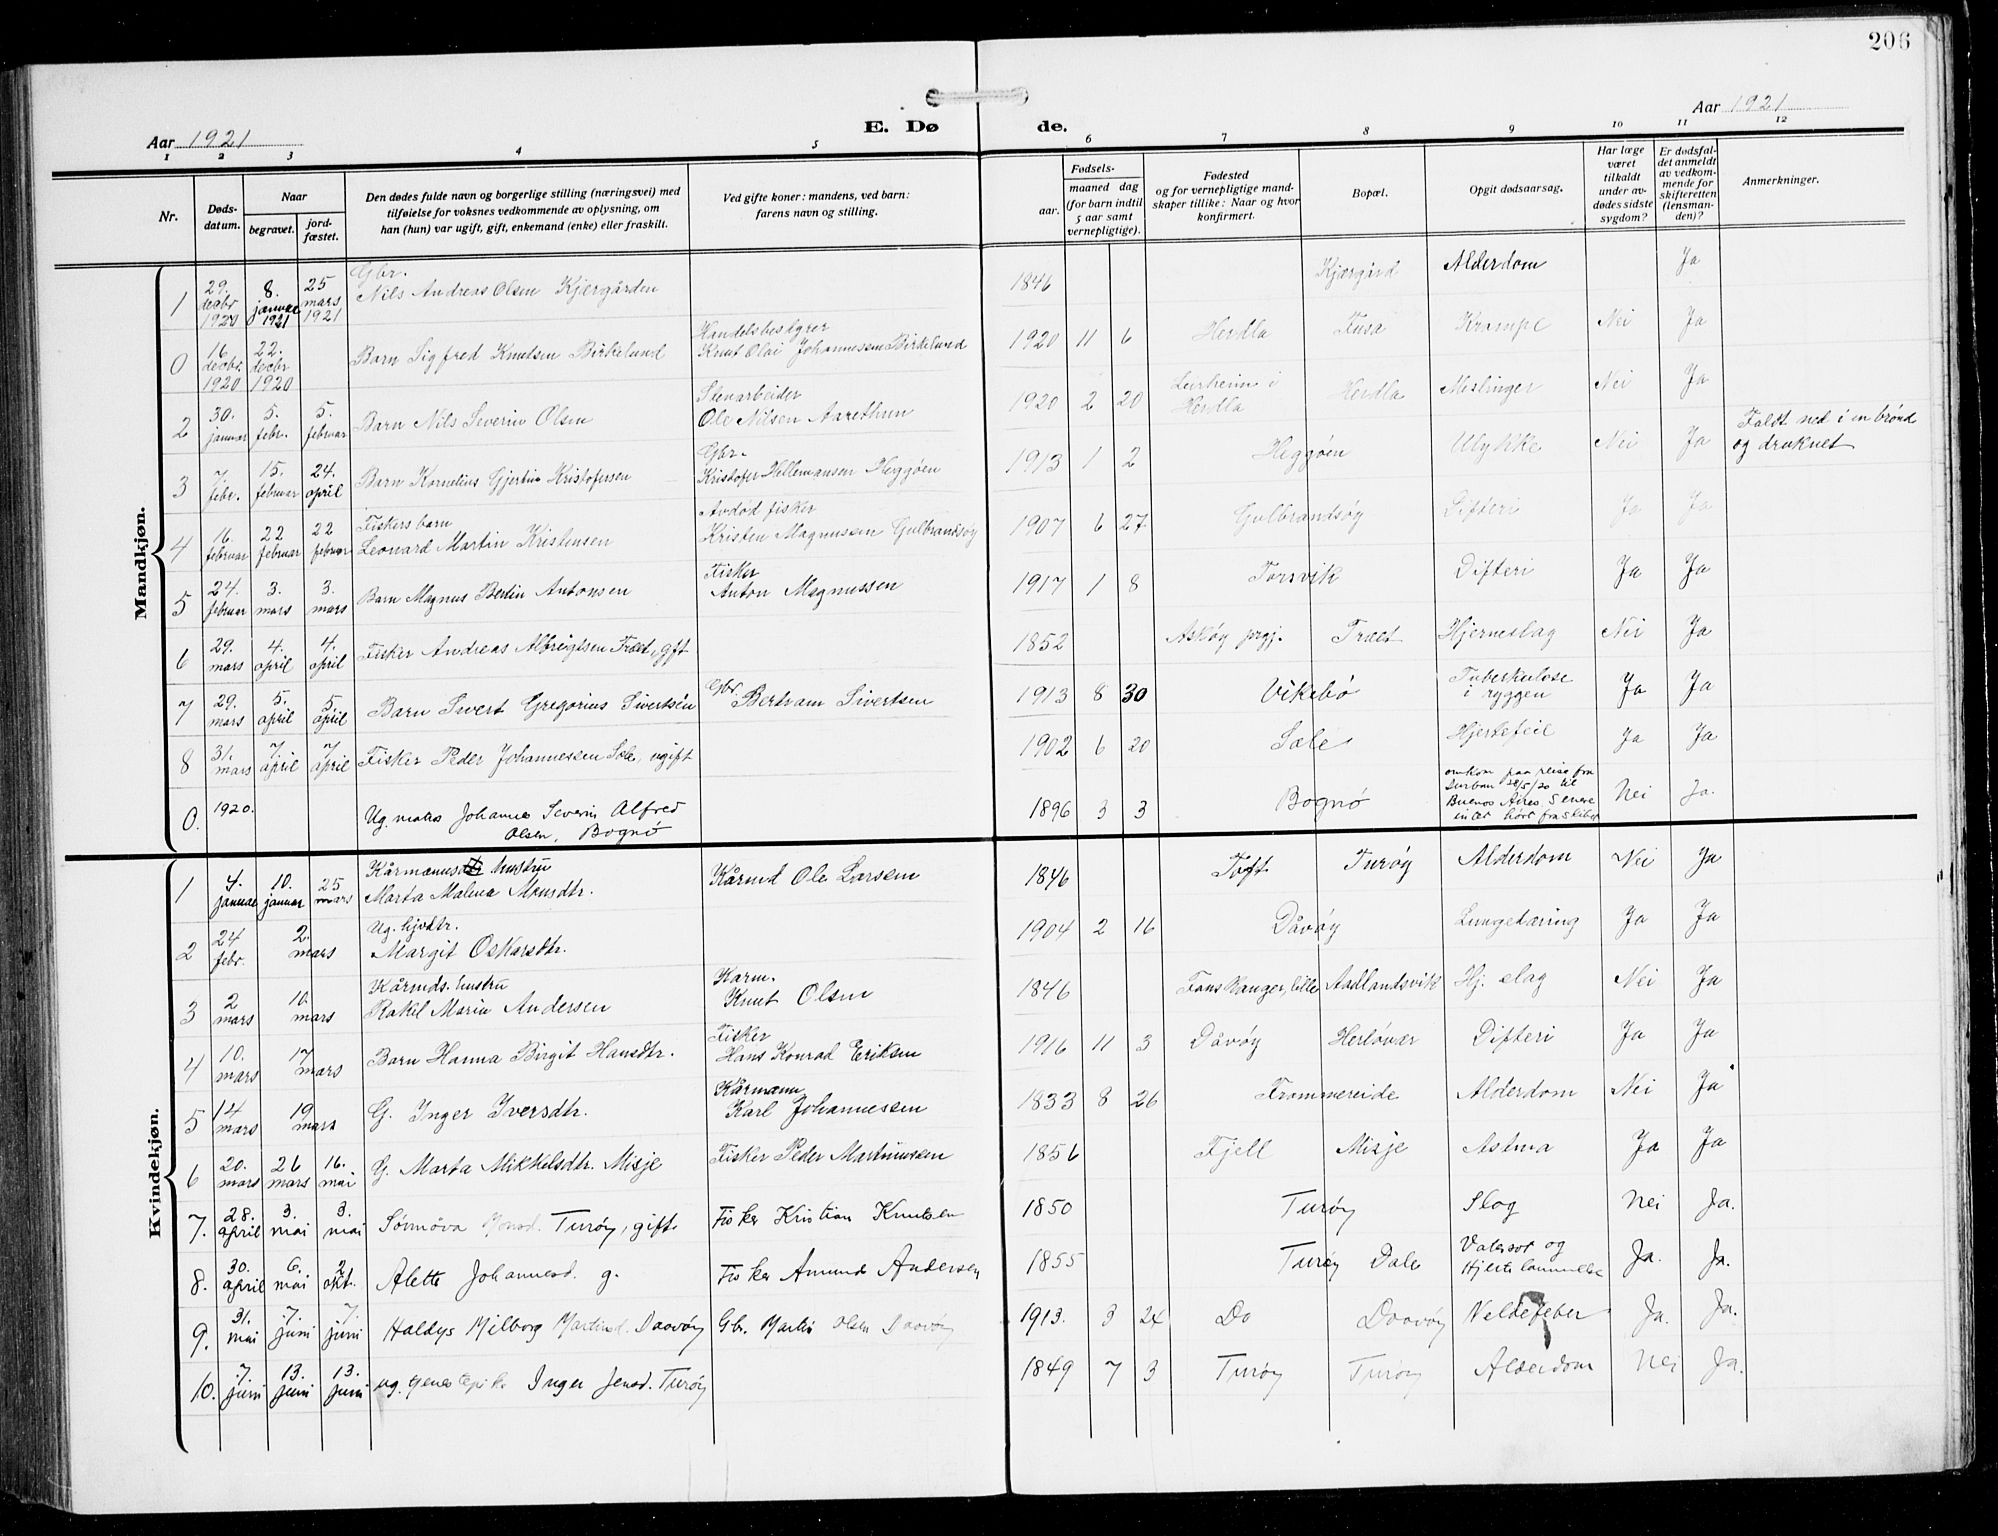 206
Aar 1921
E. Dø de.
Aar 1921
1 2 3 4 5 6 7 8 9 10 11 12
Nr.
Dødsdatum.
Naar
begravet.
jordfæstet.
Den dødes fulde navn og borgerlige stilling (næringsvei) med
tilføielse for voksnes vedkommende av oplysning, om
han (hun) var ugift, gift, enkemand (enke) eller fraskilt.
Ved gifte koner: mandens, ved barn:
farens navn og stilling.
Fødsels-
aar.
maaned dag
(for barn indtil
5 aar samt
vernepligtige).
Fødested
og for vernepligtige mandskaper tillike: Naar og hvor
konfirmert.
Bopæl.
Opgit dødsaarsag.
Har læge
været
tilkaldt
under avdødes sidste
sygdom?
Er dødsfaldet anmeldt
av vedkommende for
skifteretten
(lensmanden)?
Anmerkninger.
Mandkjøn.
1 29. decbr 1920 8. januar 1921 25 mars 1921 Gbr. Nils Andreas Olsen Kjærgården 1846 Kjærgård Alderdom Ja
0 16 decbr. 1920 22. decbr 1920 Barn Sigfred Knutsen Birkelund Handelsbestyrer Knut Olai Johannessen Birkelund 1920 11 6 Herdla Fusa Krampe Nei Ja
2 30. januar 5. febr. 5. februar Barn Nils Severin Olsen Stenarbeider Ole Nilsen 1920 2 20 Leirheim i Herdla Herdla Meslinger Nei Ja
3 7 febr. 15. februar 24. april Barn Kornelius Gjertin Kristofersen Gbr. Kristofer Hellemansen Heggøen 1913 1 2 Heggøen Ulykke Nei Ja Faldt ned i en brønd og druknet
4 16. februar 22 februar 22 februar Fiskers barn Leonard Martin Kristensen Avdød fisker Kristen Magnussen Gulbrandsøy 1907 6 27 Gulbrandsøy Difteri Ja Ja
5 24. februar 3. mars 3. mars Barn Magnus Bertin Antonsen Fisker Anton Magnussen 1917 1 8 Torsvik Difteri Ja Ja
6 29. mars 4. april 4. april Fisker Andreas Albregtsen Træet, gift 1852 Askøy prgj. Træet Hjerneslag Nei Ja
7 29. mars 5. april 5. april Barn Sivert Gregorius Sivertsen Gbr. Bertram Sivertsen 1913 8 30 Vikebø Tuberkulose i ryggen Ja Ja
8 31. mars 7. april 7 april Fisker Peder Johannessen Sæle, ugift 1902 6 20 Sæle Hjertefeil Ja Ja
0. 1920. Ug. matros Johannes Severin Alfred Olsen, Bognø 1896 3 3 Bognø omkom paa reise fra Durban 28/5/20 til Buenos Aires. Senere hørt fra skibet Nei Ja.
Kvindekjøn.
1 4. januar 10. januar 25 mars Kårmanns hustru Marta Malena Monsdtr. Kårmd Ole Larsen 1846 Toft Turøy Alderdom Nei Ja
2 24 febr. 2. mars Ug. Margit Oskarsdtr. 1904 2 16 Dåvøy Lungetæring Ja Ja
3 2 mars 10. mars Kårmds. hustru Rakel Marie Andersen Kårm. Knut Olsen 1846 Aadlandsvik Hj. slag Nei Ja
4 10. mars 17 mars Barn Hanna Birgit Hansdtr. Fisker Hans Konrad Eriksen 1916 11 3 Dåvøy Herløvær Difteri Ja Ja
5 14 mars 19 mars G. Inger Iversdtr. Kårmann Karl Johannessen 1833 8 26 Frommereide Alderdom Nei Ja
6 20. mars 26 mars 16. mai G. Marta Mikkelsdtr. Misje Fisker Peder Martinussen 1856 Fjell Misje Astma Ja Ja
7. 28. april 3. mai 3. mai Sønnøva Monsd. Turøy, gift Fisker Kristian Knutsen 1850 Turøy Slag Nei Ja.
8. 30. april 6. mai 2 okt. Alette Johannesd. g. Fisker Amund Andersen 1855 Turøy Dale Vatersot og Hjertelammelse Ja. Ja.
9. 31. mai 7. juni 7. juni Haldys Milborg Martinsd. Daavøy Gbr. Martin Olsen Daavøy 1913. 3 24 Do Daavøy Neldefeber Ja. Ja.
10. 7. juni 13. juni 13. juni ug. Inger Jensd. Turøy 1849 7 3 Turøy Turøy Alderdom Nei Ja.